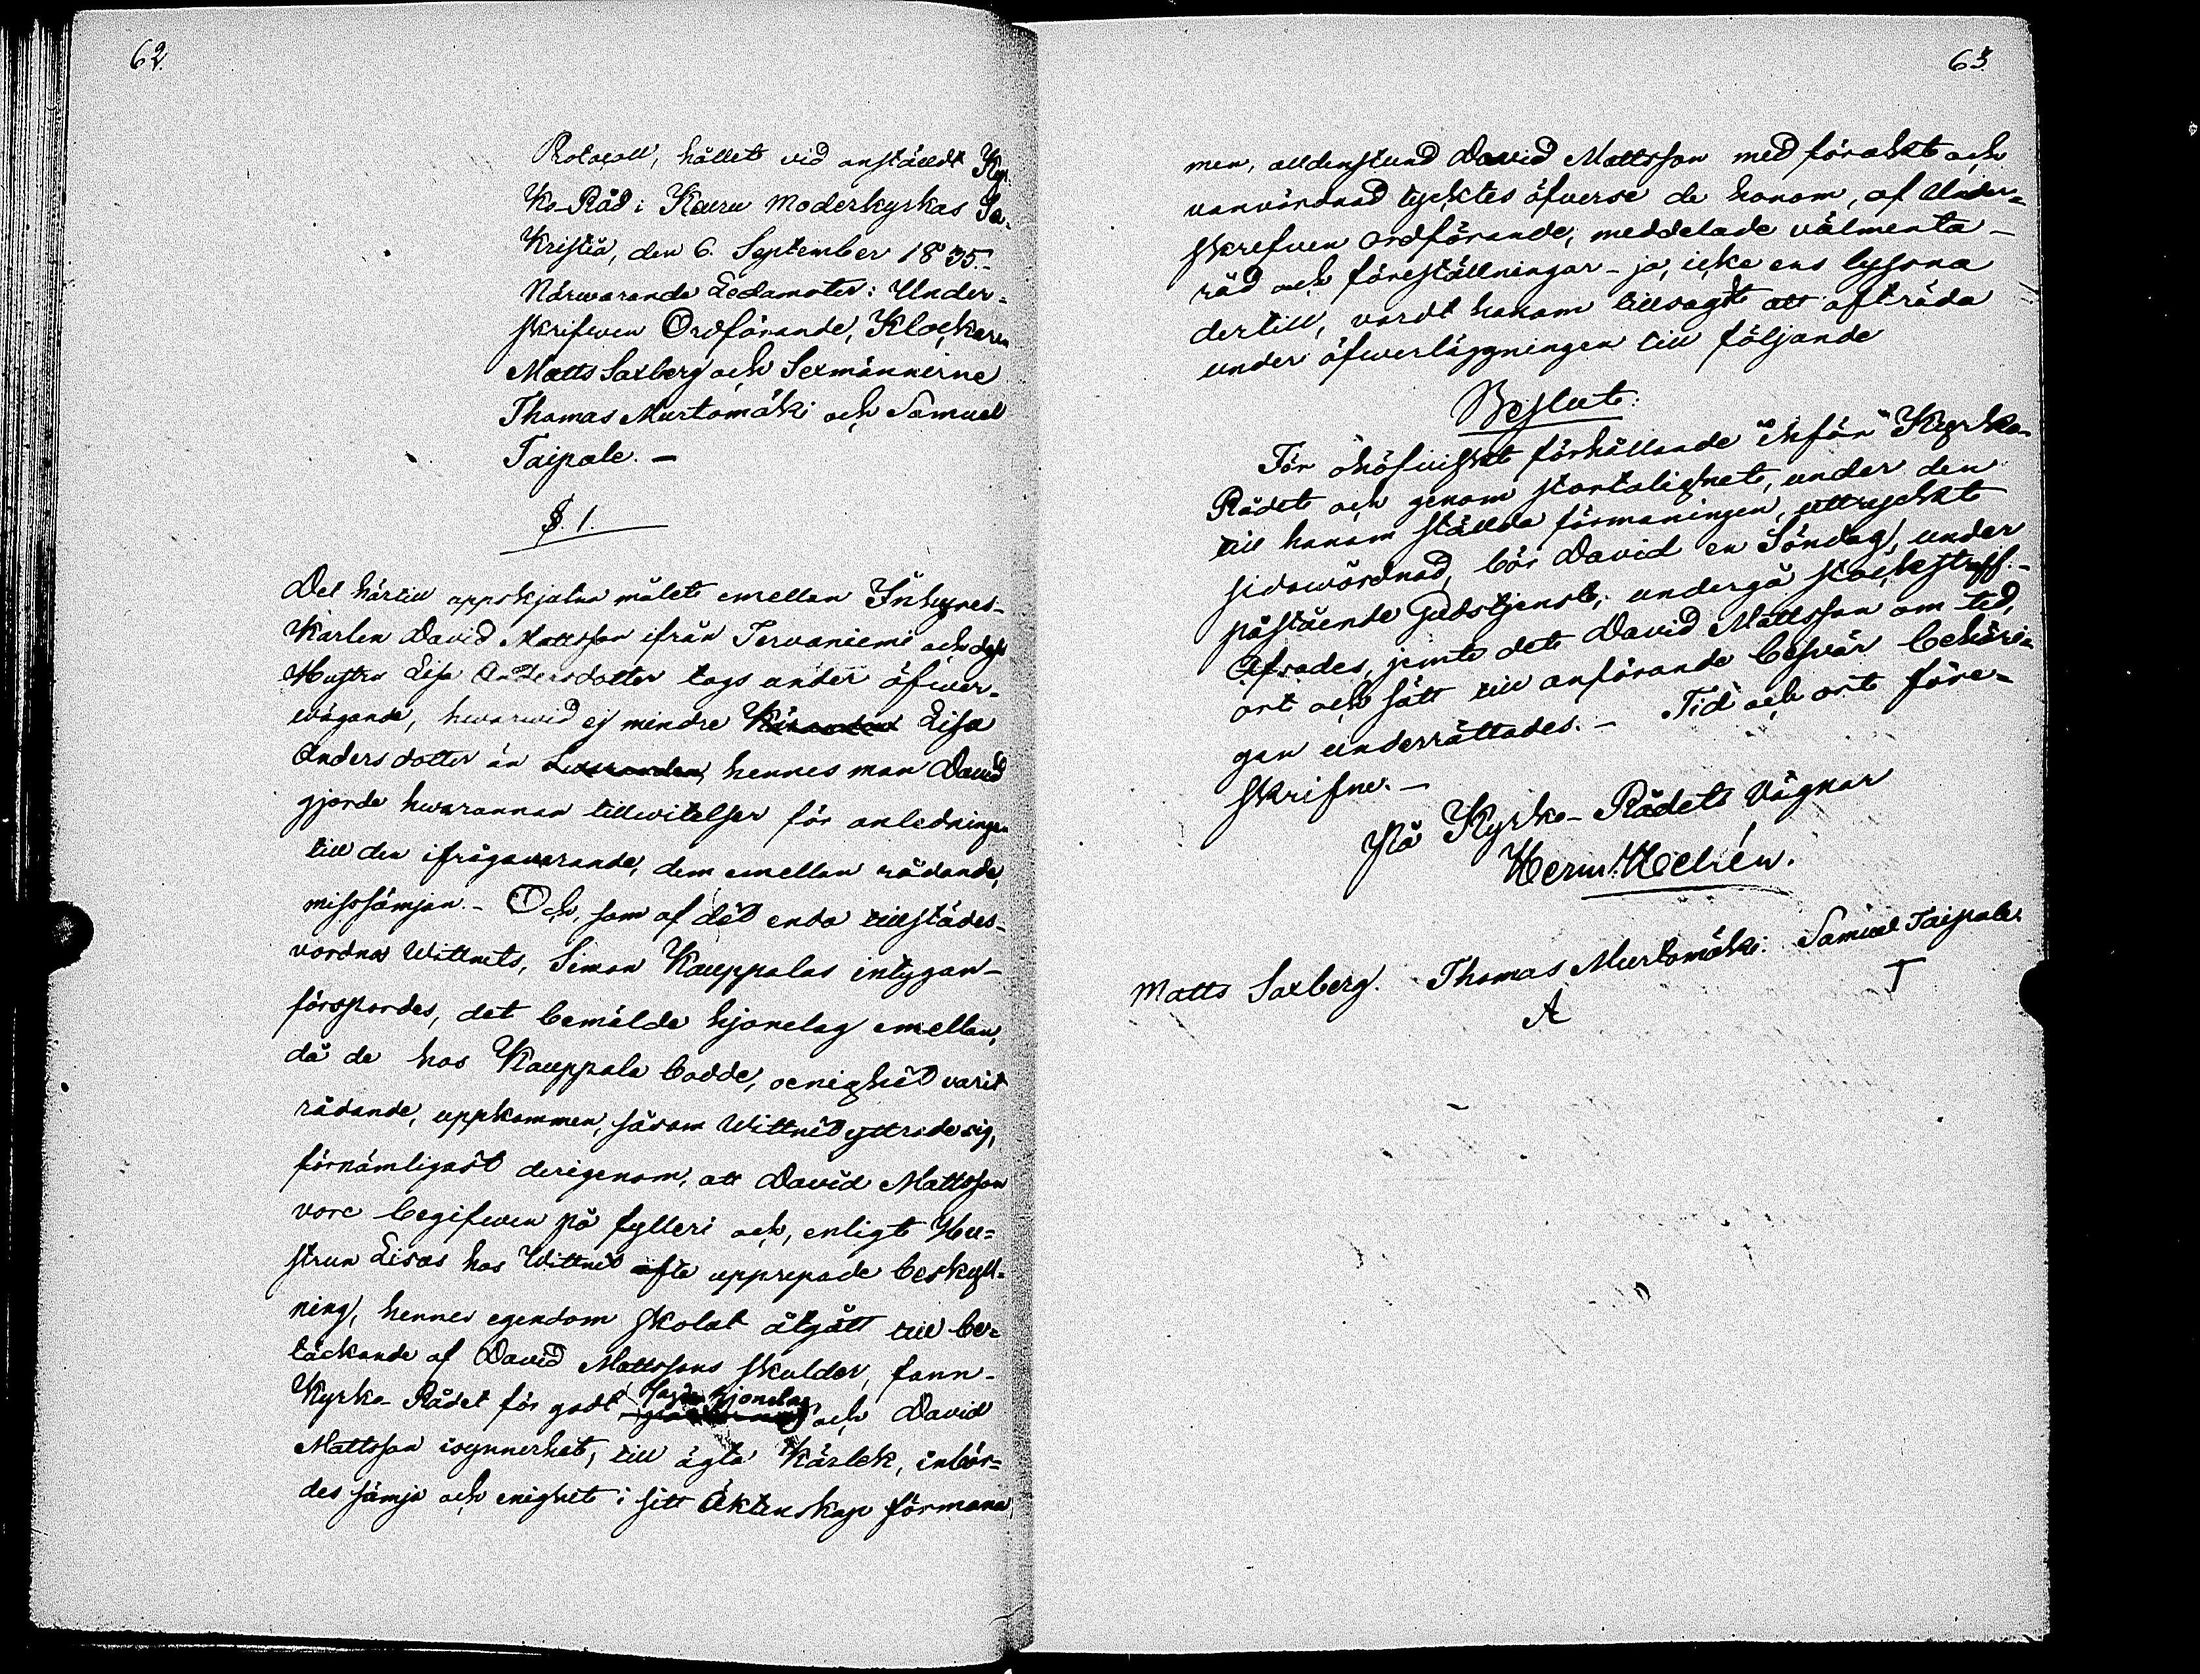 62.
Protocoll, hållet vid anstäldt Kyr-
ko-Råd i Keuru Moderkyrkas Sa-
kristia, den 6. September 1835.-
Närwarande Ledamöter: Under-
skrifwen Ordförande, Klockaren
Matts Saxberg och Sexmännerne
Thomas Murtomäki och Samuel
Taipale. -
§. 1.
Det härtill uppskjutna målet emellan Inhyses-
Karlen David Mattsson ifrån Tervaniemi och dess
Hustru Lisa Andersdotter togs under öfwer-
wägande, hwarwid ej mindre Käranden Lisa
Andersdotter än Swaranden, hennes man David
gjorde hwarannan tillwitelser för anledningen
till den ifrågawarande, dem emellan rådande,
misssämjan. - Och, som af det enda tillstädes-
vordna Wittnets, Simon Kauppalas intygan-
försports, det bemälde hjonelag emellan,
då de hos Kauppala bodde, oenighet varit
rådande, uppkommen, såsom Wittnet yttrade sig,
förnämligast derigenom, att David Mattsson
vore begifwen på fylleri och, enligt Hu-
strun Lisas hos Wittnet ofta upprepade beskyll-
ning, hennes egendom skolat åtgått till be-
täckande af David Mattssons skulder, fann-
Kyrko-Rådet för godt, sagda hjonelag, och David
Mattsson isynnerhet, till ägta kärlek, inbör-
des sämja och enighet i sitt Äktenskap förmana,
63.
men, alldenstund David Mattsson med förakt och
vanvördnad tycktes öfverse de honom, af Under-
skrefven ordförande, meddelade välmenta-
råd och föreställningar - ja, icke ens lyssna
dertill, vardt honom tillsagdt att afträda
under öfwerläggningen till följande
Beslut:
För ohöfviskt förhållande inför Kyrko-
Rådet och genom stortalighet, under den
till honom stälda förmaningen, uttryckt
sidowördnad, bör David en Söndag, under
påstående Gudstjenst, undergå stockstraff. -
Afsades, jemte det David Mattsson om tid,
ort och sätt till anförande besvär behöri-
gen underrättades. - Tid och ort före-
skrifne. -
På Kyrko-Rådets Vägnar
Herm. Helén.
Matts Saxberg. Thomas Murtomäki. Samuel Taipale.
A T